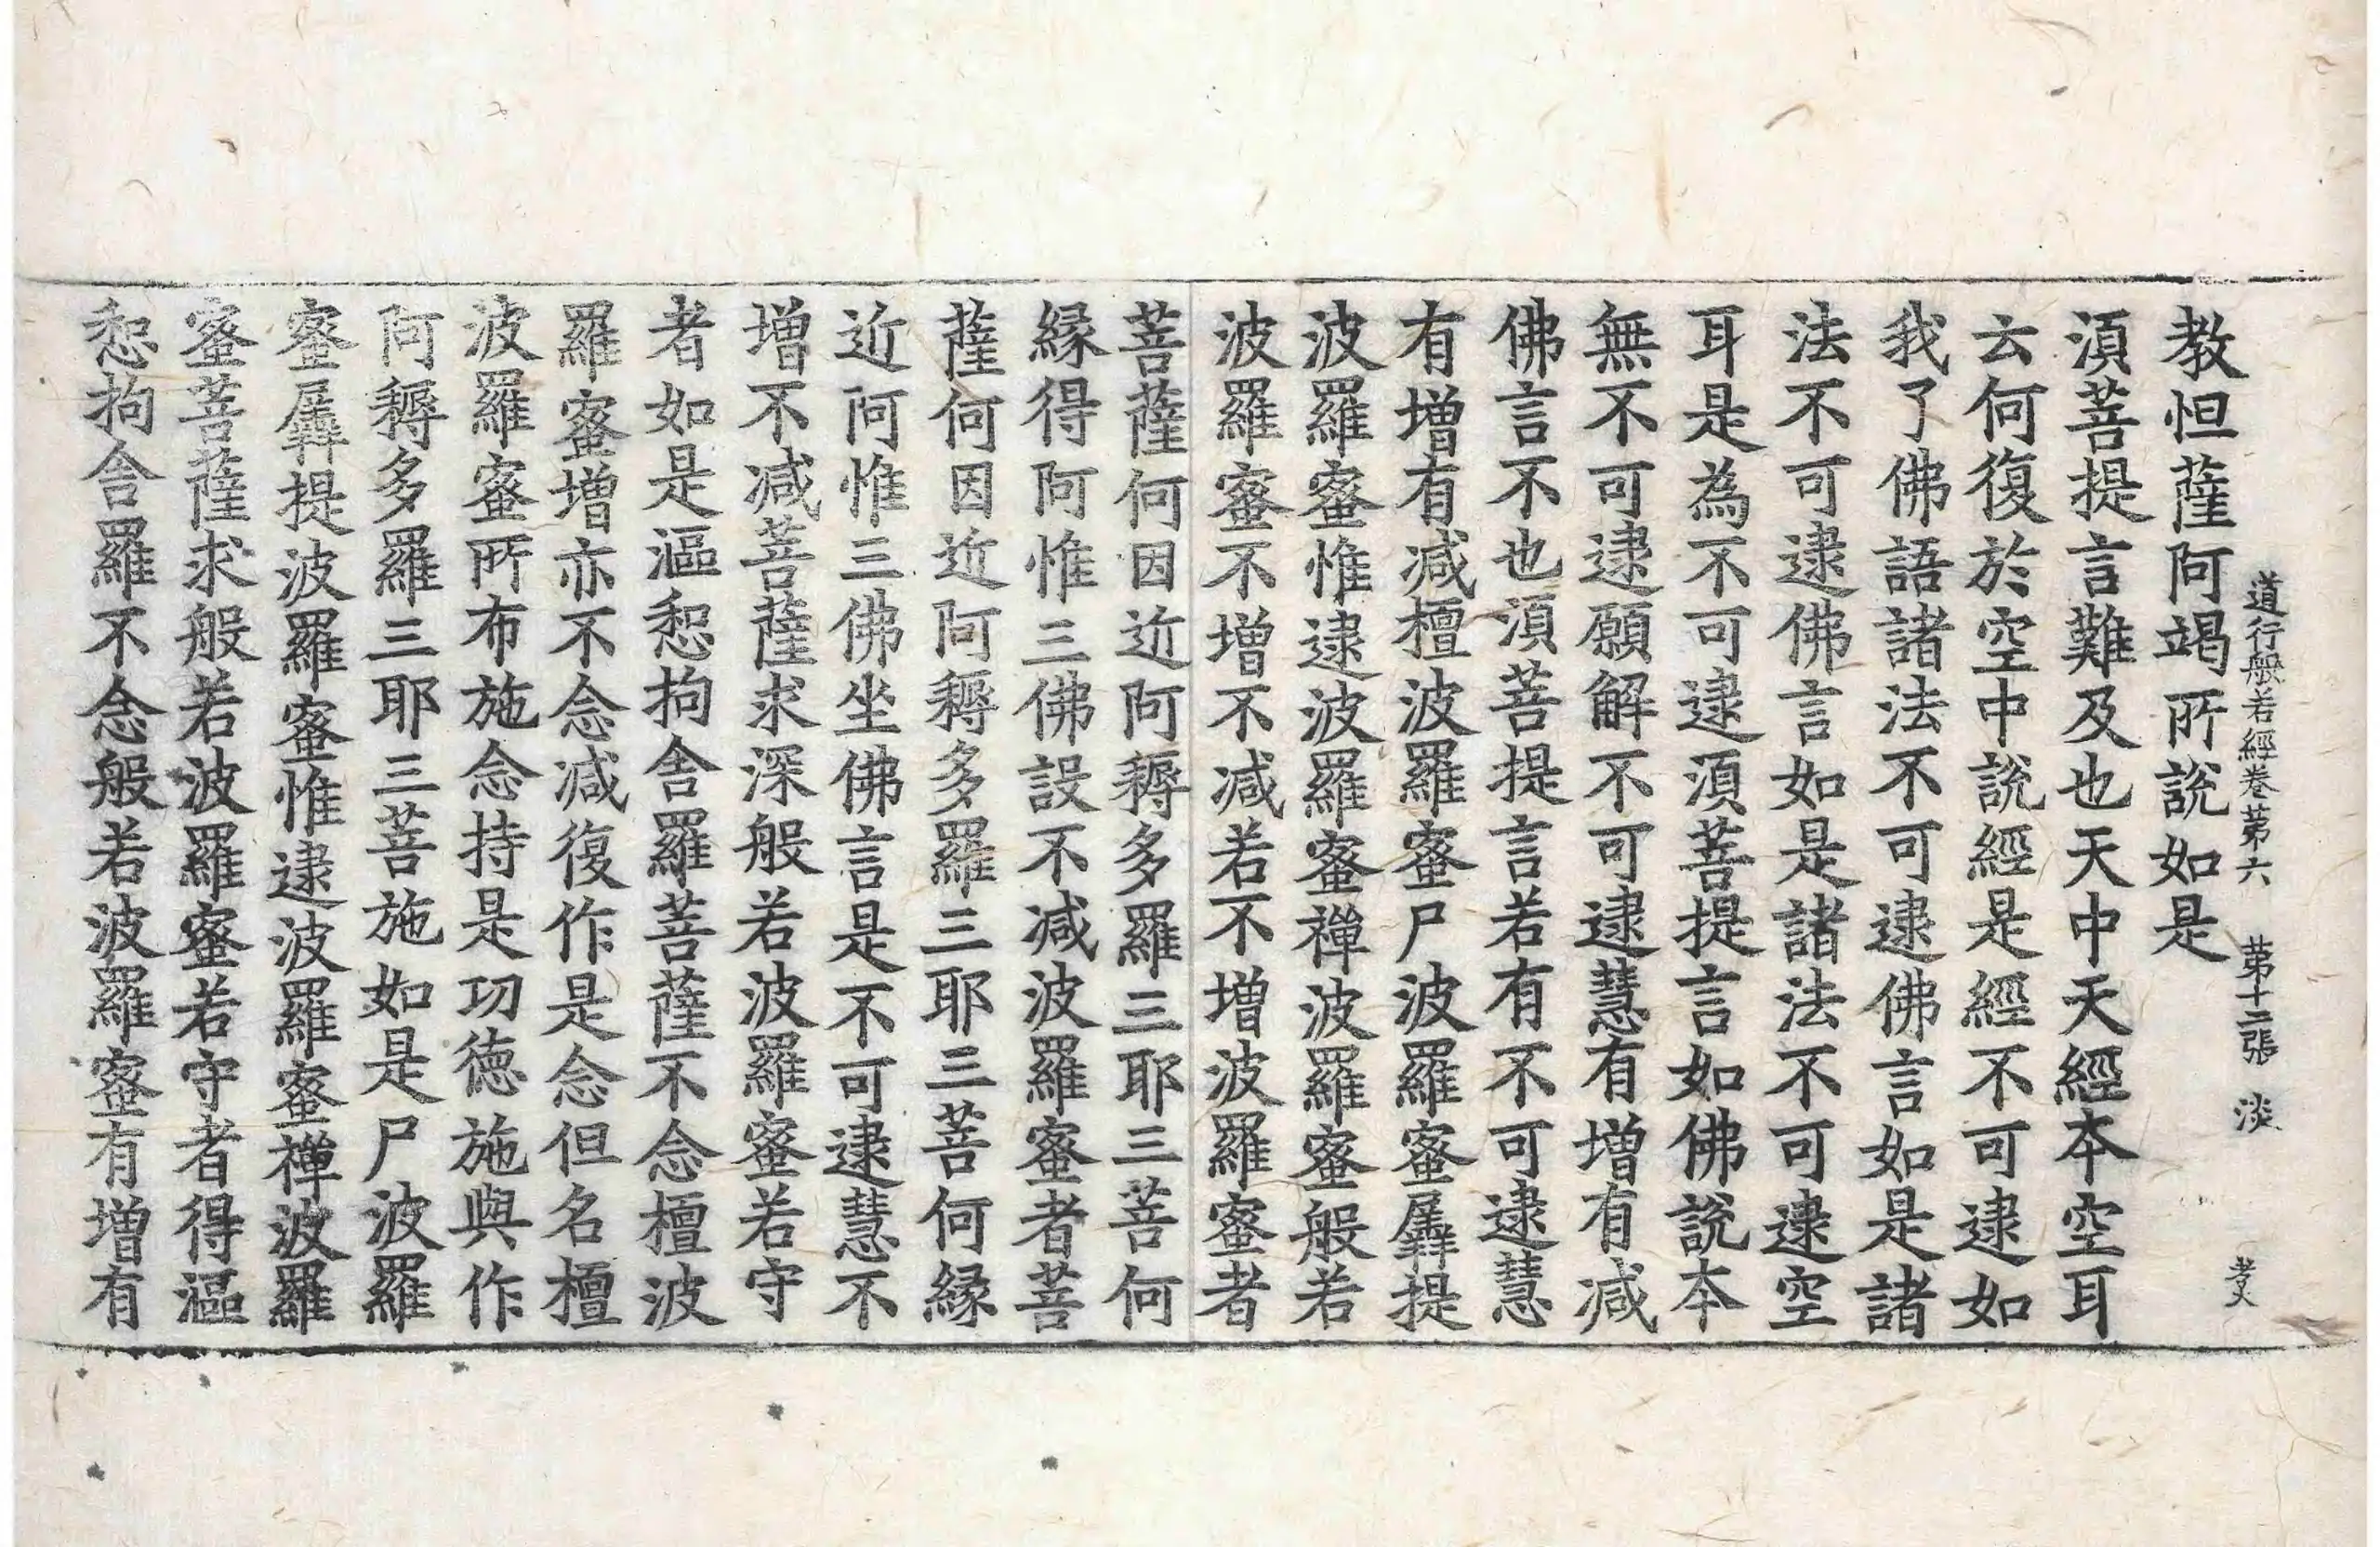 道行般若經卷苐六 苐十二張 淡
孝文
教怛薩阿竭所說如是
湏菩提言難及也天中天經本空耳
云何復於空中說經是經不可逮如
我了佛語諸法不可逮佛言如是諸
法不可逮佛言如是諸法不可逮空
耳是為不可逮湏菩提言如佛說本
無不可逮願解不可逮慧有增有减
佛言不也湏菩提言若有不可逮慧
有增有减檀波羅蜜尸波羅蜜羼提
波羅蜜惟逮波羅蜜禪波羅蜜般若
波羅蜜不增不减若不增波羅蜜者
菩薩何因近阿耨多羅三耶三菩何
縁得阿惟三佛設不减波羅蜜者菩
薩何因近阿耨多羅三耶三菩何縁
近阿惟三佛坐佛言是不可逮慧不
增不减菩薩求深般若波羅蜜若守
者如是漚惒拘舍羅菩薩不念檀波
羅蜜增亦不念减復作是念但名檀
波羅蜜所布施念持是功徳施與作
阿耨多羅三耶三菩施如是尸波羅
蜜羼提波羅蜜惟逮波羅蜜禪波羅
蜜菩薩求般若波羅蜜若守者得漚
惒拘舍羅不念般若波羅蜜有增有